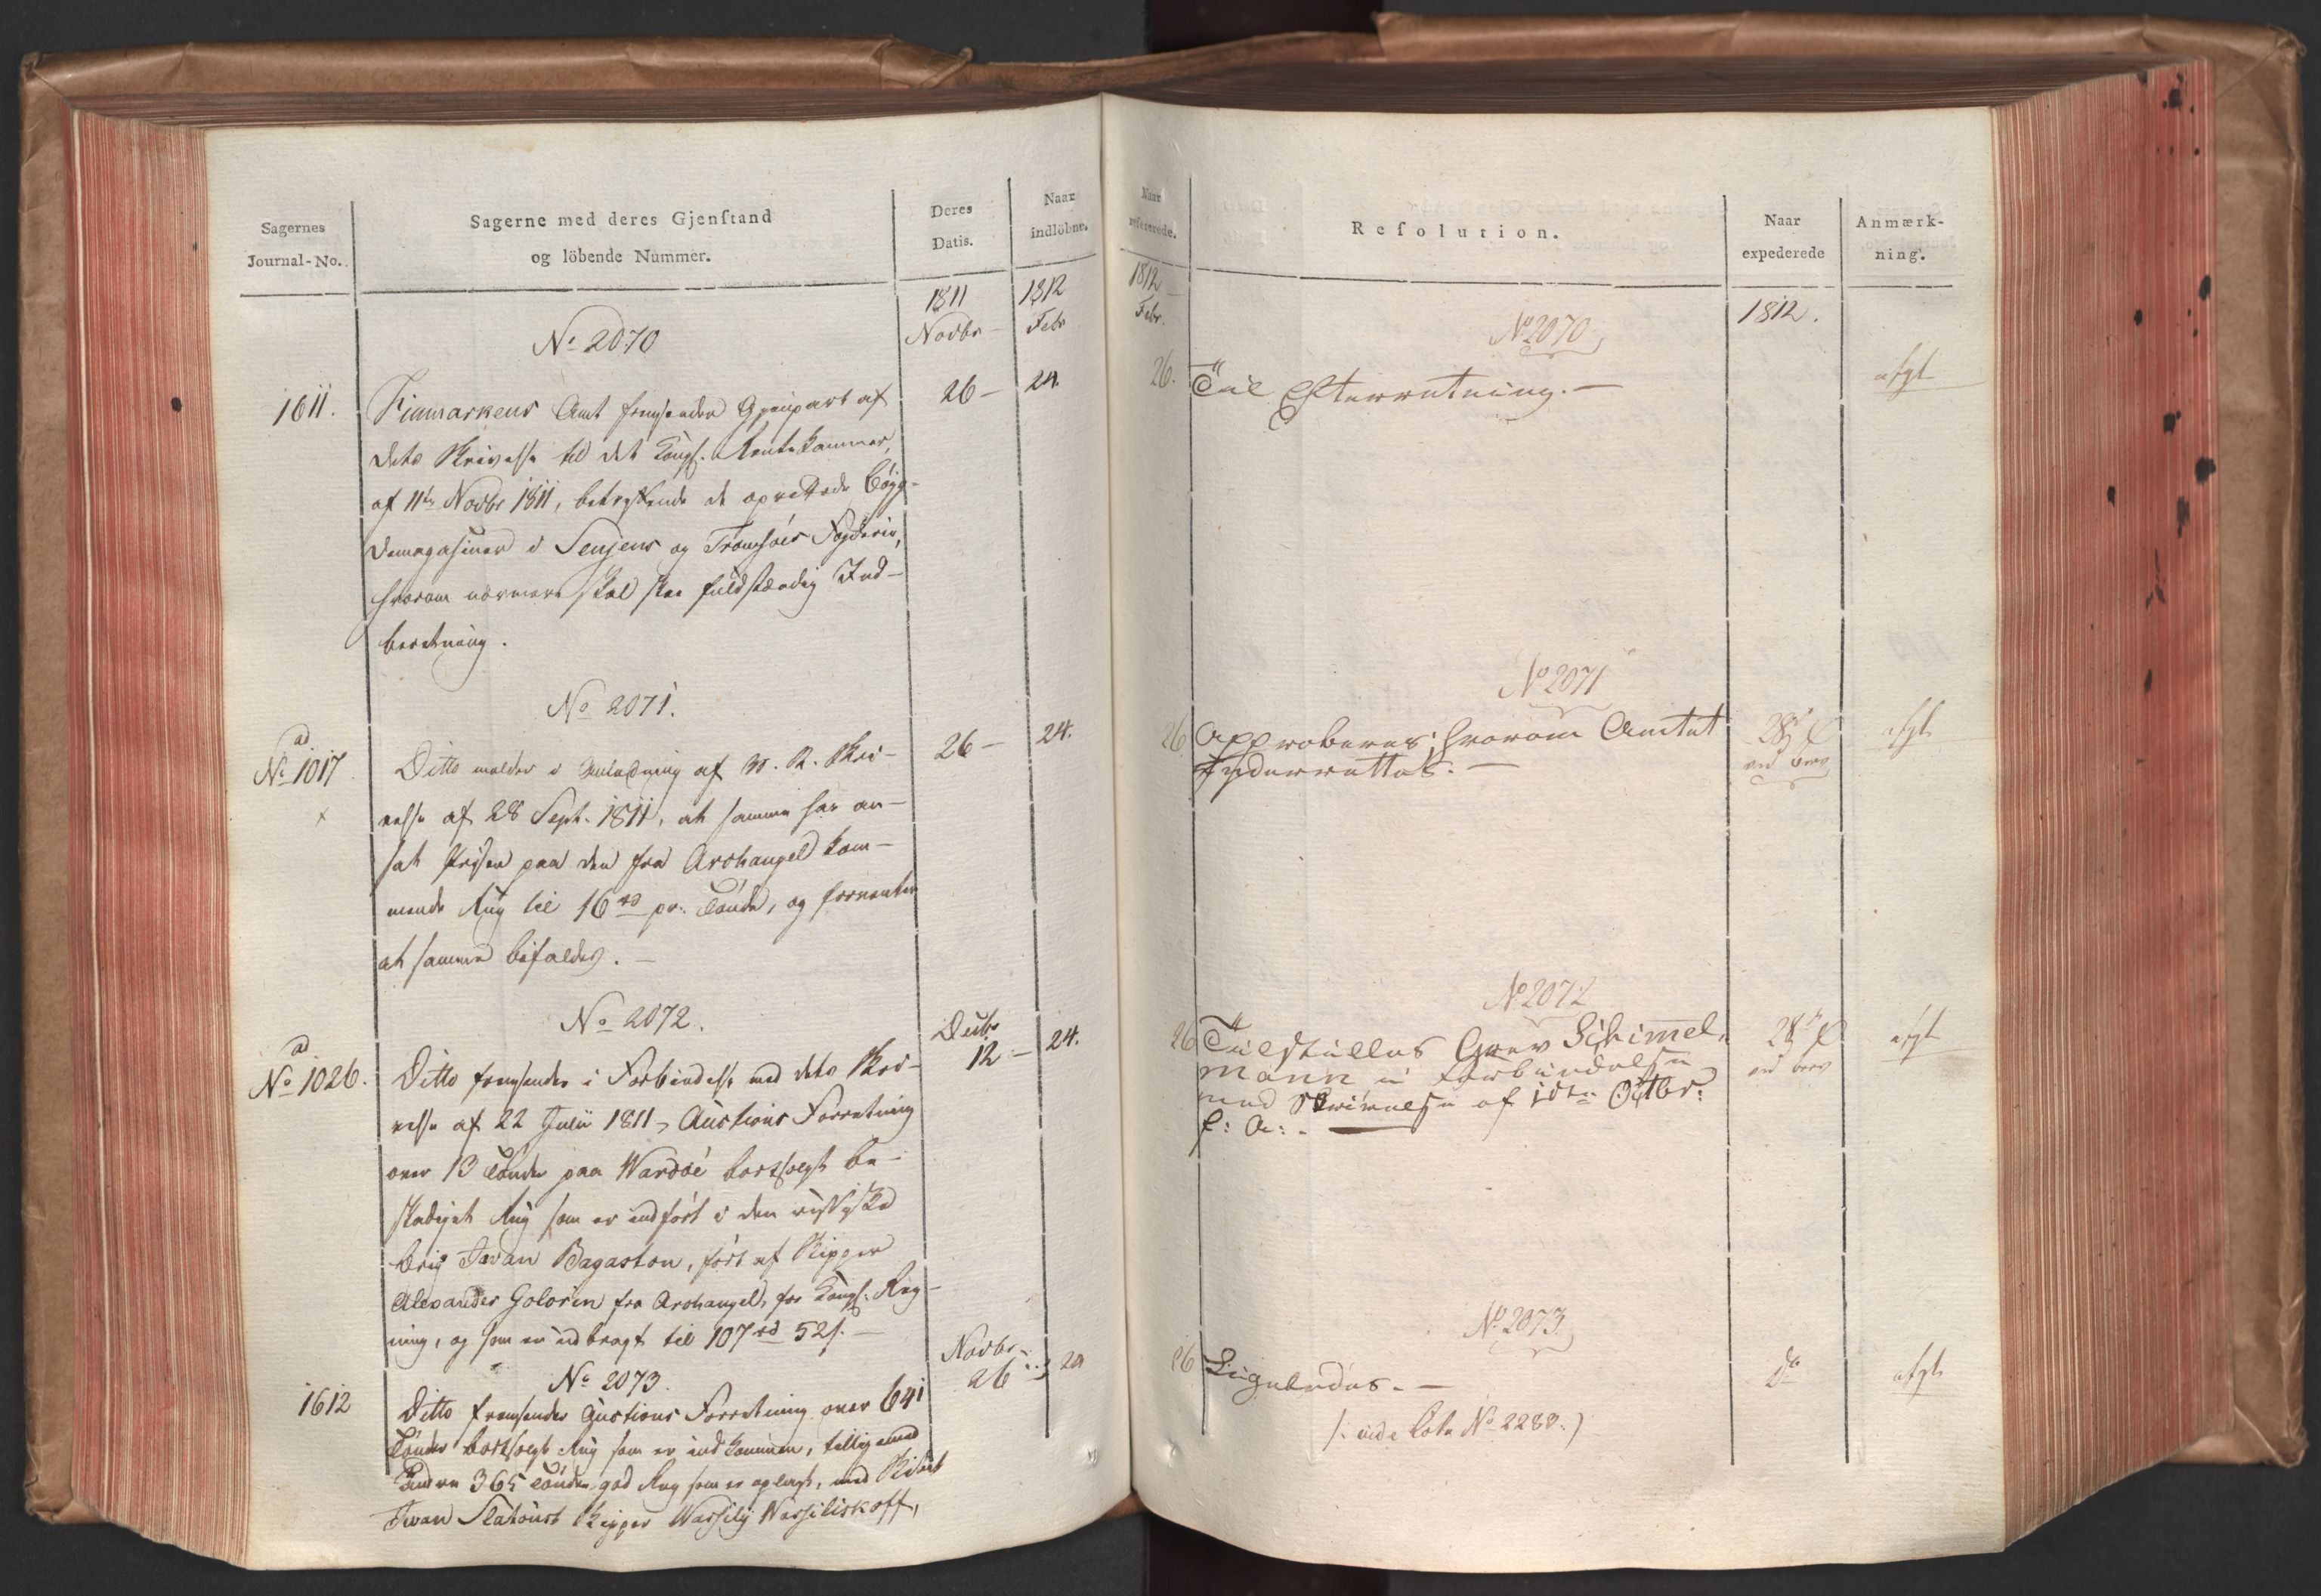 Sagernes
Journal-No.
Sagerne med deres Gjenstand
og löbende Nummer.
Deres
Datis.
Naar
indlöbne.
1811
Novbr
1812
Febr
No 2070
1611.
Finmarkens Amt fremsender Gjenpart af
26 –
24.
dets Skrivelse til det Kongl. Rentekammer,
af 11te Novbr 1811, betreffende de oprettede Bÿg-
demagasiner i Senjens og Tromsöes Fogderie,
hvorom nærmere skal skee fuldstændig Ind-
beretning.
No 2071.
ad
No 1017
Ditto melder i Anledning af Skri-
26 –
24.
velse af 28 Sept. 1811, at samme har an-
sat Prisen paa den fra Archangel kom-
mende Rug til 16 rd pr. Tönde, og forventer
at samme bifaldes. –
No 2072.
Decbr
ad
No 1026.
Ditto fremsender i Forbindelse med dets Skri-
12 –
24.
velse af 22 Julii 1811, Auctions Forretning
over 13 Tönder paa Wardöe bortsolgt be-
skadiget Rug som er indfört i den russiske
Brig Iwan Bagaston, fört af Skipper
Alexander Golorin fra Archangel, for Kongl. Reg-
ning, og som er udbragt til 107 rd 52 s. –
No 2073.
Novbr
1612
Ditto fremsender Auctions Forretning over 641
26
24
Tönder bortsolgt Rug som er indkommen, tilligemed
365 Tönder god Rug som er oplagt, med Skibet
Iwan Slatoust Skipper Wassilij Wassiliskoff,
Naar
refererede.
Resolution.
Naar
expederede
Anmærk-
ning.
1812
Febr.
1812.
No 2070
26.
Til Efterretning. –
afgt
No 2071
26
Approberes; hvorom Amtet
28
afgt
underrettes. –
ved brev
No 2072
26
Tilstilles Grev Schimmel-
28
afgt
mann i Forbindelse
ved brev
med Skrivelse af Octbr:
f: A: –
No 2073
26
Ligeledes. –
Do
afgt
(: vide No 2288 :)